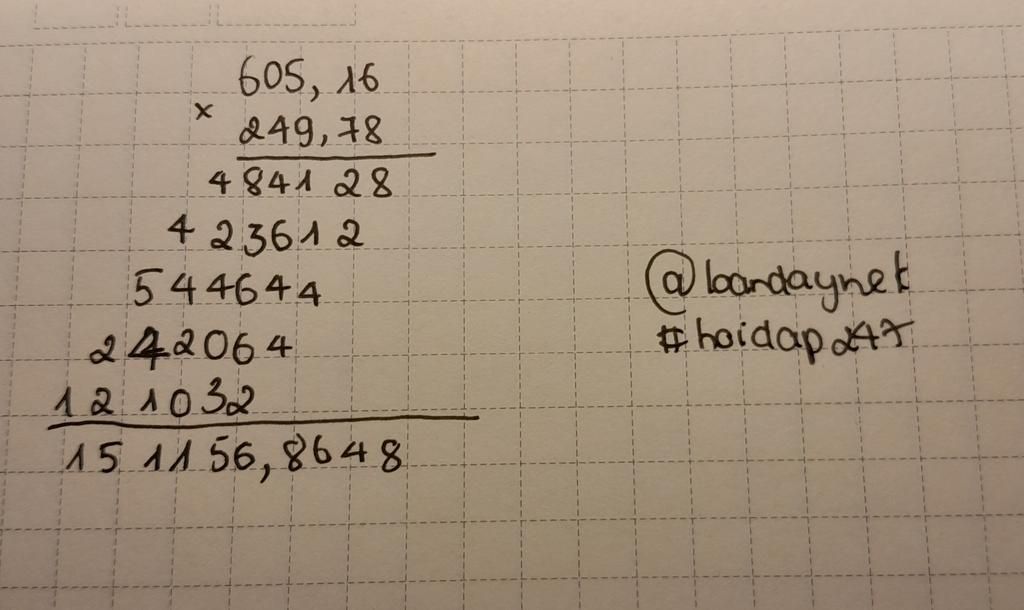 605,16
×
249,78
484128
423612
544644
242064
121032
151156,8648
@bandaynek
#hoidap247